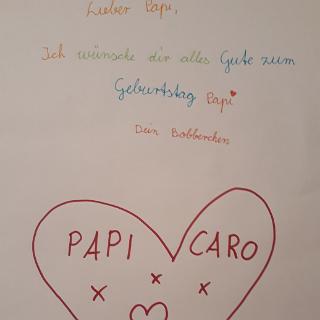 Lieber Papi,
Ich wünsche dir alles Gute zum
Geburtstag Papi
Dein Bobberchen
PAPI CARO
x x x